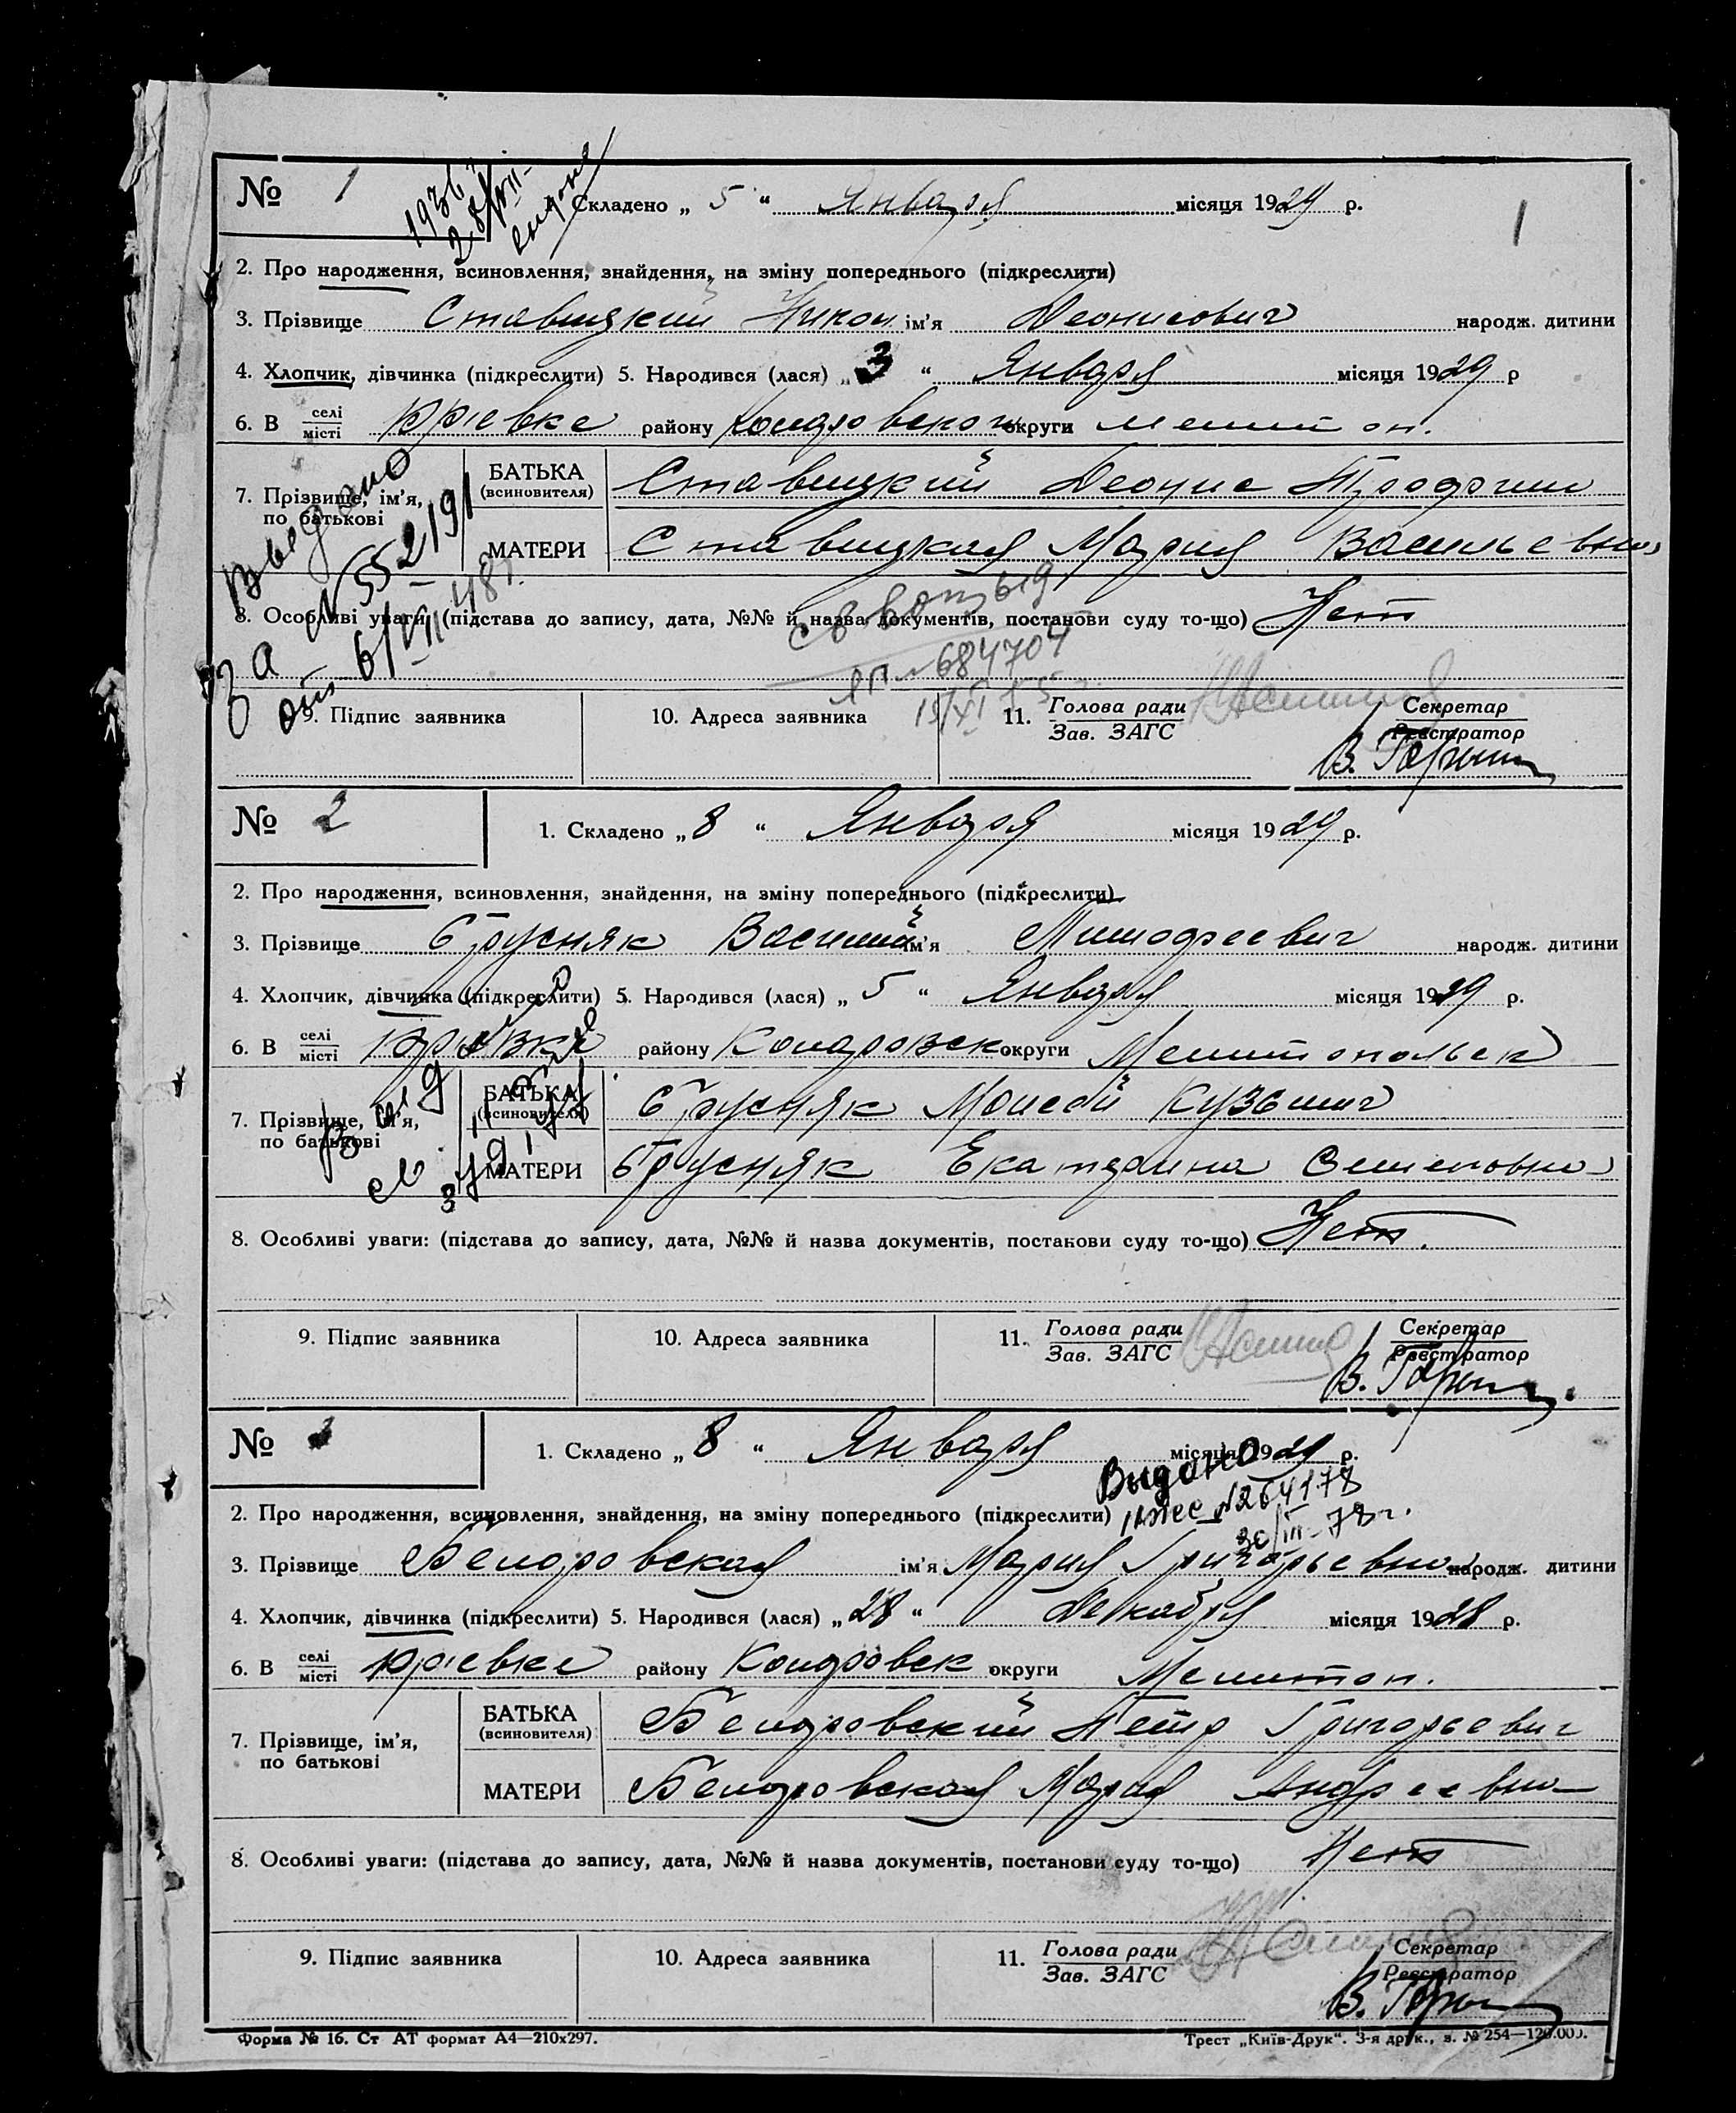 № 1
1936 г
28/VII-
выдано
Складено „ 5 “ Января місяця 1929 р.
1
2. Про народження, всиновлення, знайдення, на зміну попереднього (підкреслити)
3. Прізвище Ставицкий Никон ім’я Деонисович народж. дитини
4. Хлопчик, дівчинка (підкреслити) 5. Народився (лася) „ 3 “ Января місяця 1929 р
6. В селі місті району округи Мелитоп.
7. Прізвище, ім’я, по батькові
БАТЬКА (всиновителя) Ставицкий Деонис Трофим
МАТЕРИ Ставицкая Мария Васильевна
№ 552191
от 6/VII 48г.
8. Особливі уваги: (підстава до запису, дата, №№ й назва документів, постанови суду то-що) Нет
684704
9. Підпис заявника 10. Адреса заявника 11. Голова ради Зав. ЗАГС Секретар Реєстратор
№ 2
1. Складено „ 8 “ Января місяця 1929 р.
2. Про народження, всиновлення, знайдення, на зміну попереднього (підкреслити)
3. Прізвище Василий ім’я народж. дитини
4. Хлопчик, дівчинка (підкреслити) 5. Народився (лася) „ 5 “ Января місяця 1929 р.
6. В селі місті району округи Мелитопольск
7. Прізвище, ім’я, по батькові
БАТЬКА (всиновителя) Моисей Кузьмич
МАТЕРИ Екатерина Семеновна
8. Особливі уваги: (підстава до запису, дата, №№ й назва документів, постанови суду то-що) Нет.
9. Підпис заявника 10. Адреса заявника 11. Голова ради Зав. ЗАГС Секретар Реєстратор
№
1. Складено „ 8 “ Января місяця 1929 р.
Выдано
№264178
30/III-78г.
2. Про народження, всиновлення, знайдення, на зміну попереднього (підкреслити)
3. Прізвище ім’я Мария Григорьевна народж. дитини
4. Хлопчик, дівчинка (підкреслити) 5. Народився (лася) „ 28 “ Декабря місяця 1928 р.
6. В селі місті району округи Мелитоп.
7. Прізвище, ім’я, по батькові
БАТЬКА (всиновителя) Петр Григорьевич
МАТЕРИ Мария Андреевна
8. Особливі уваги: (підстава до запису, дата, №№ й назва документів, постанови суду то-що) Нет
9. Підпис заявника 10. Адреса заявника 11. Голова ради Зав. ЗАГС Секретар Реєстратор
Форма № 16. Ст АТ формат А4—210х297.
Трест „Київ-Друк“. 3-я друк., з. № 254—120.000.